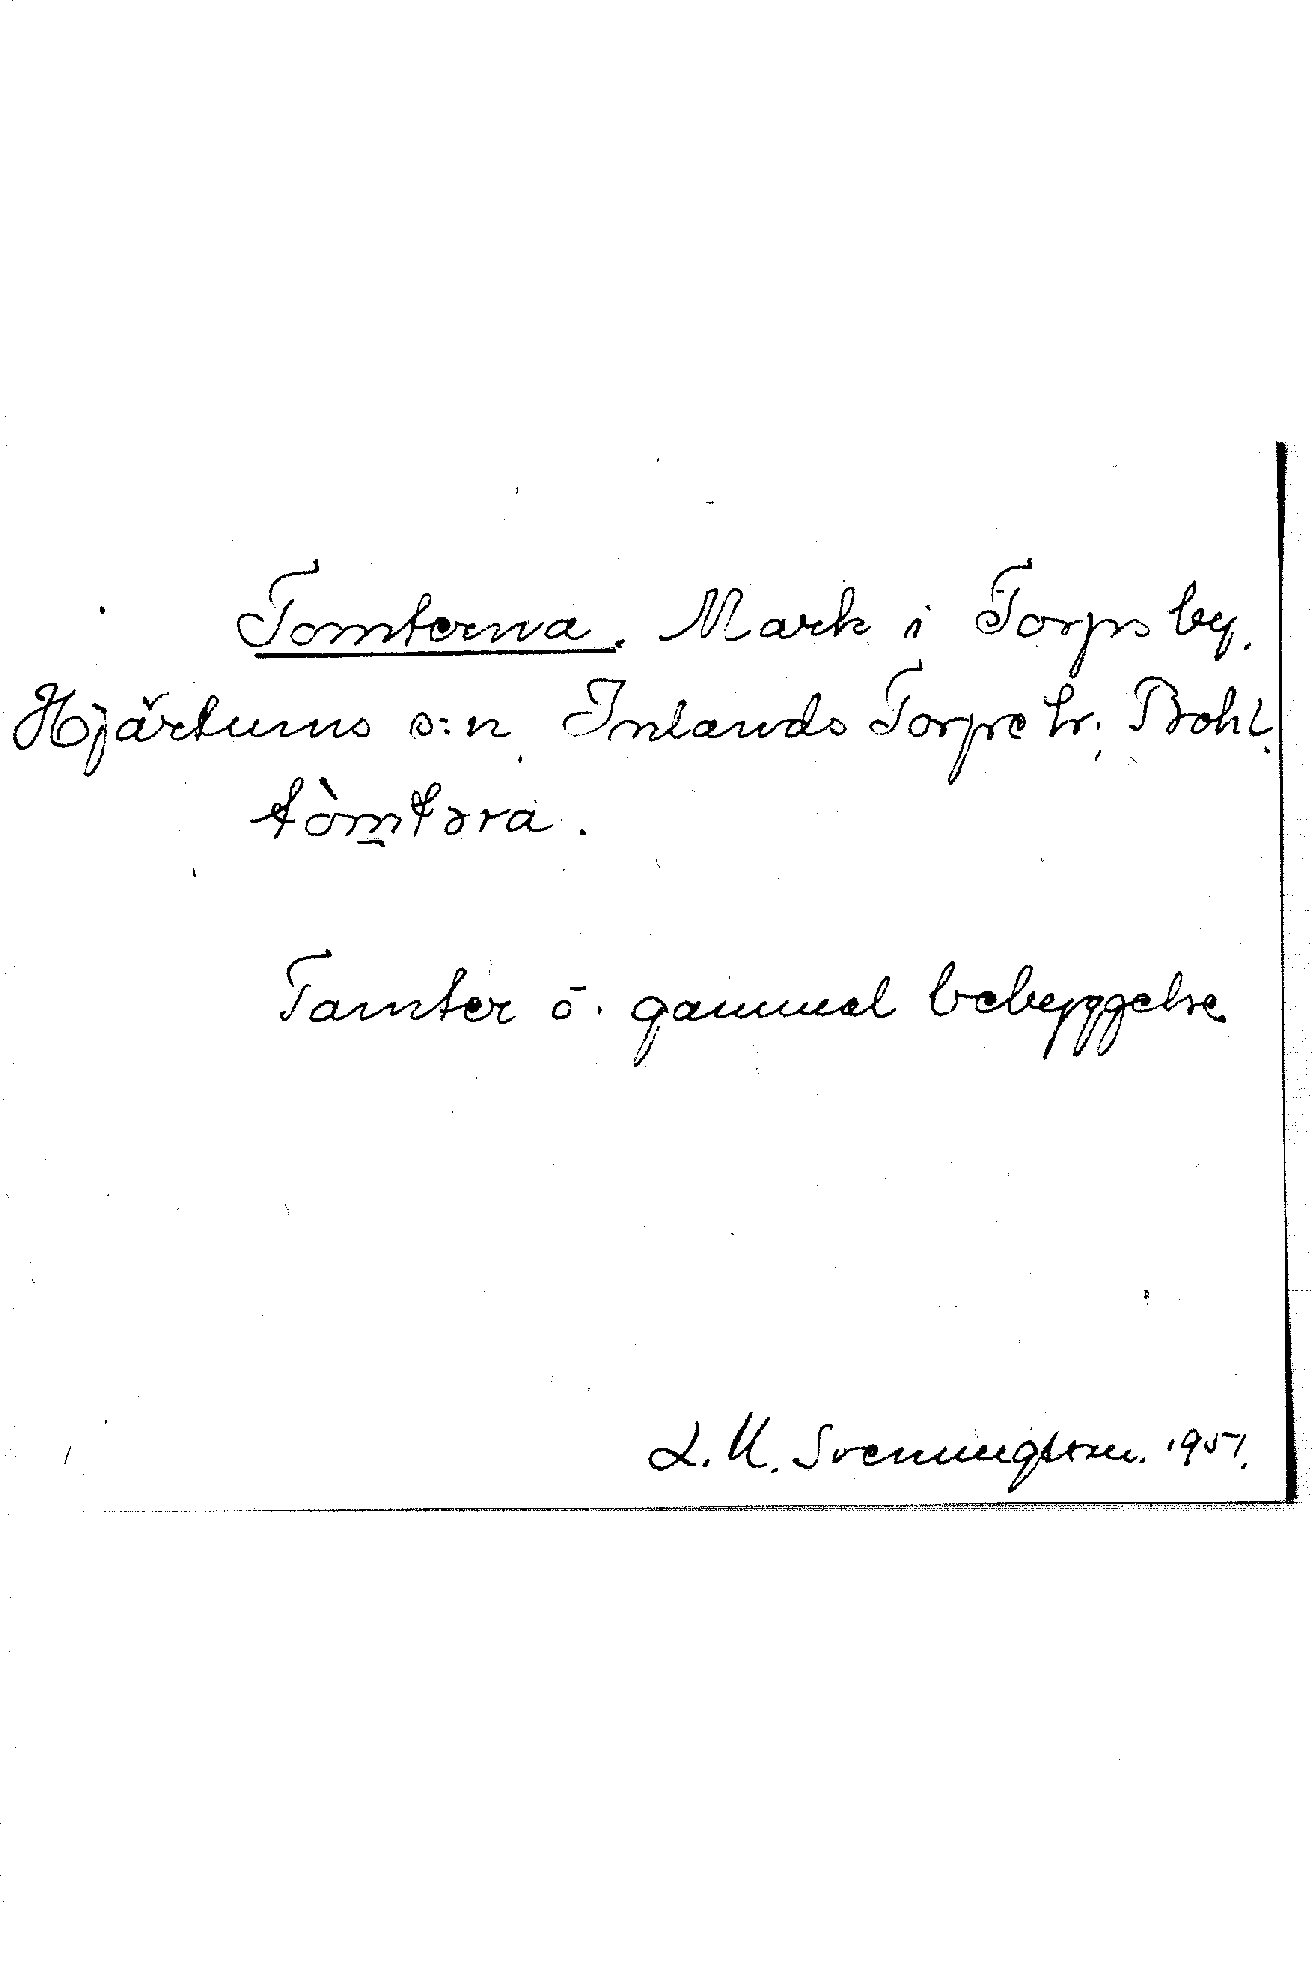 Tomterna. Mark i Torps by.
Hjärtums s:n, Inlands Torpe hr; Bohl.
tòm̲təra.
Tomter o. gammal bebyggelse.
L. M. Svenungsson. 1951.